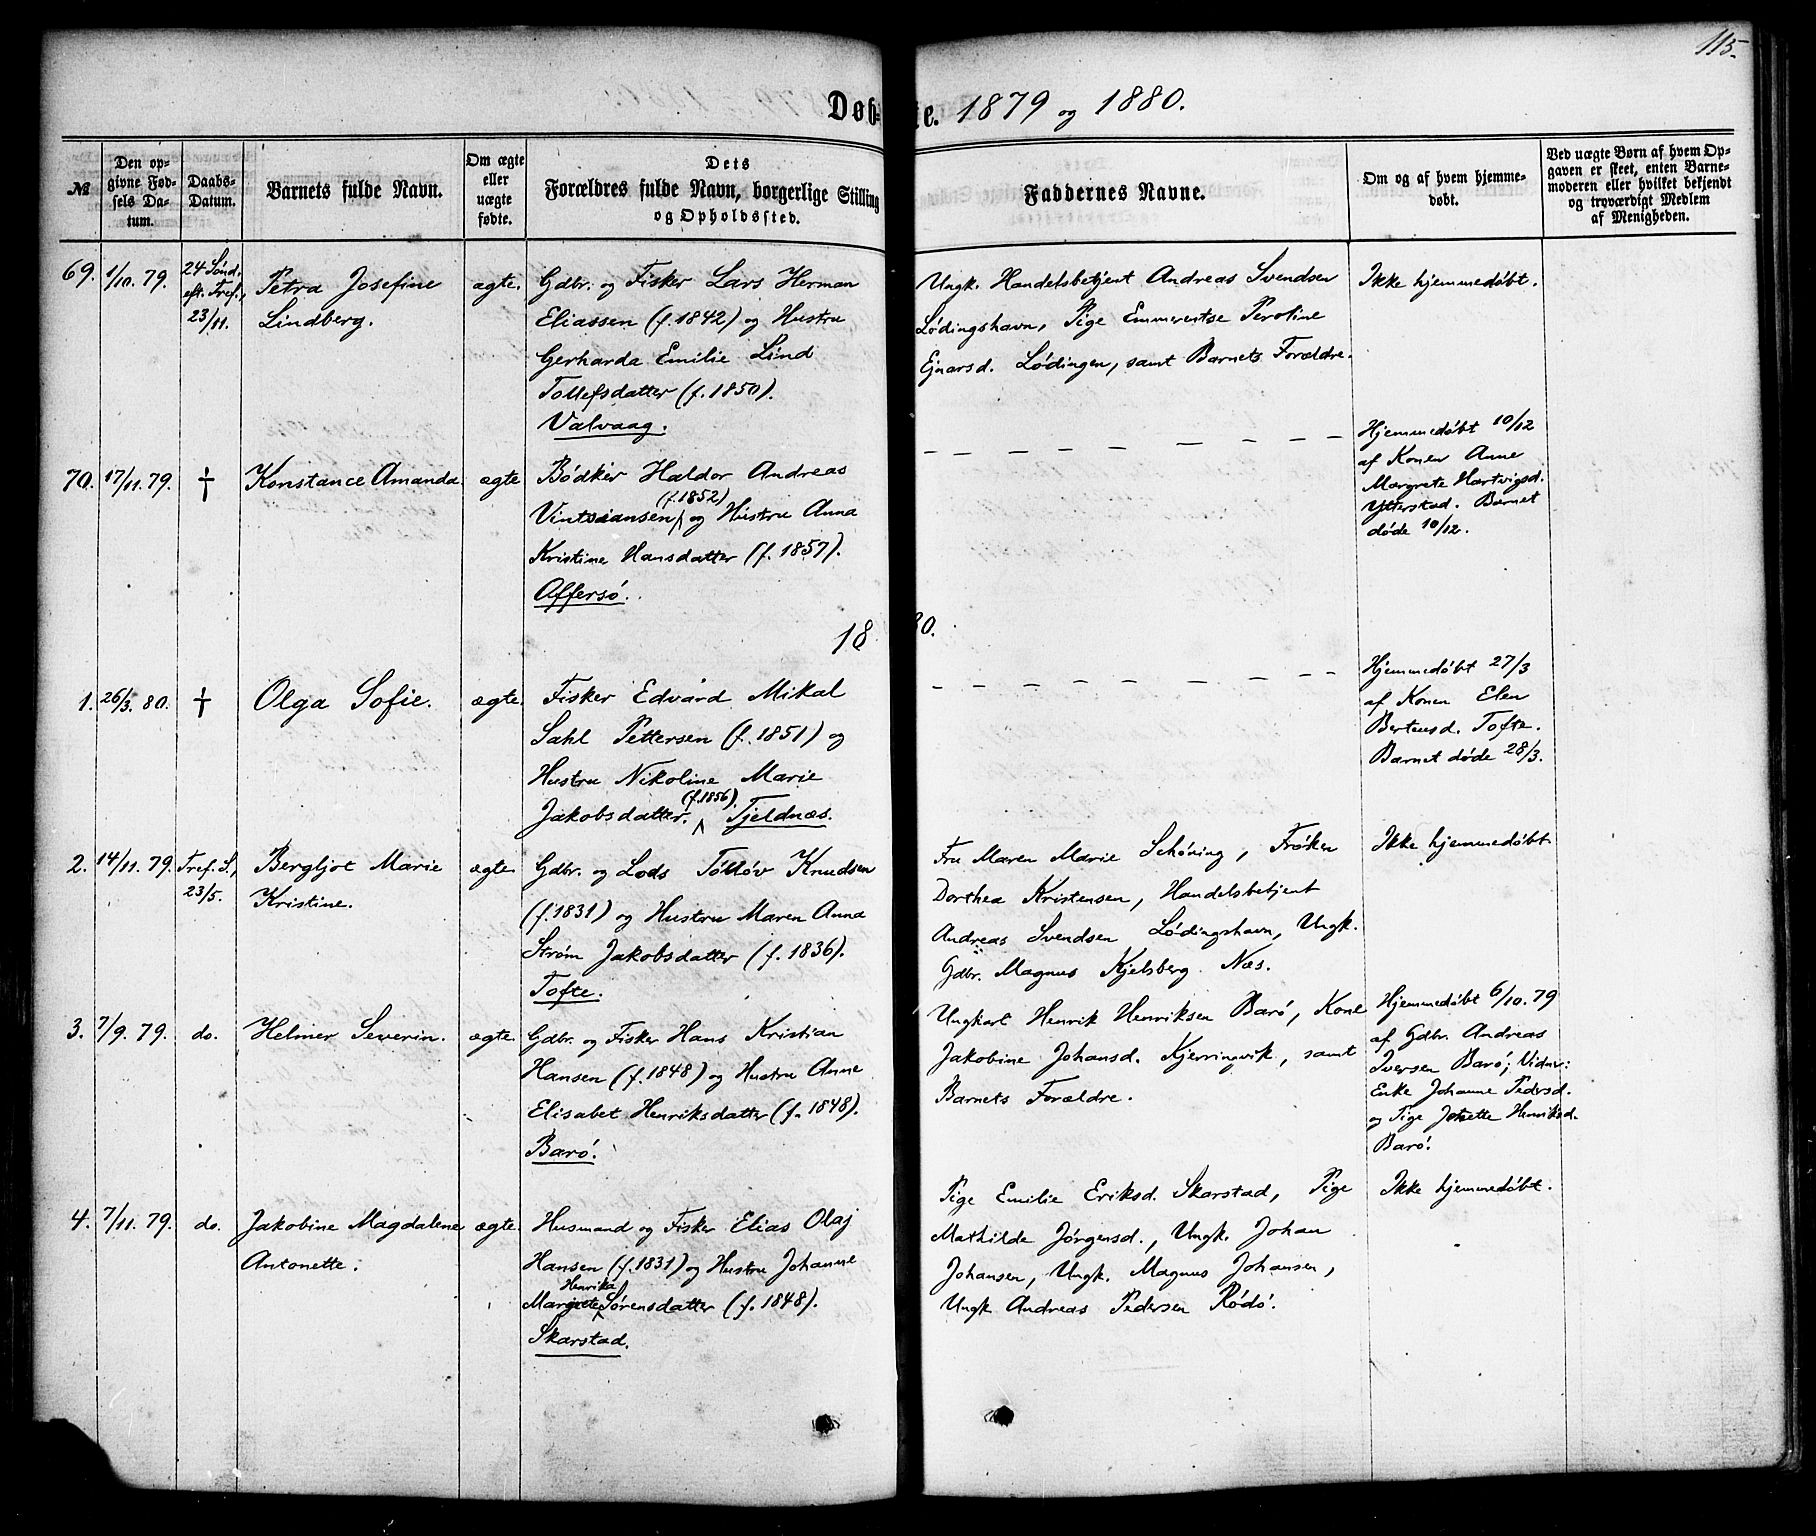 115.
Døb- e. 1879 og 1880.
№
Den op-
givne Fød-
sels Da-
tum.
Daabs-
Datum.
Barnets fulde Navn.
Om ægte
eller
uægte
fødte.
Dets
Forældres fulde Navn, borgerlige Stilling
og Opholdssted.
Faddernes Navne.
Om og af hvem hjemme-
døbt.
Ved uægte Børn af hvem Op-
gaven er skeet, enten Barne-
moderen eller hvilket bekjendt
og troværdigt Medlem
af Menigheden.
69. 1/10. 79.
24 Sønd.
eft. Tref.,
23/11.
Petra Josefine
Lindberg.
ægte.
Gdbr. og Fisker Lars Herman
Eliassen (f. 1842) og Hustru
Gerharda Emilie Lind
Tollefsdatter (f. 1850).
Valvaag.
Ungk. Handelsbetjent Andreas Svendsen
Lødingshavn, Pige Emmerentse Peroline
Ejnarsd. Lødingen, samt Barnets Forældre.
Ikke hjemmedøbt.
70. 17/11. 79. †
Konstance Amanda.
ægte
Bødker Haldor Andreas
(f. 1852)
Vintsiansen og Hustru Anna
Kristine Hansdatter (f. 1857).
Affersø.
— — — — — — — —
Hjemmedøbt 10/12
af Konen Anne
Margrete Hartvigsd.
Ytterstad. Barnet
døde 10/12.
18 80.
1. 26/3. 80. †
Olga Sofie.
ægte.
Fisker Edvard Mikal
Sahl Pettersen (f. 1851) og
Hustru Nikoline Marie
(f. 1856).
Jakobsdatter. Tjeldnæs.
— — — — — — — —
Hjemmedøbt 27/3
af Konen Elen
Berteusd. Tofte.
Barnet døde 28/3.
2. 14/11. 79.
Tref. S.,
23/5.
Bergljot Marie
Kristine.
ægte.
Gdbr. og Lods Tølløv Knudsen
(f. 1831) og Hustru Maren Anna
Strøm Jakobsdatter (f. 1836).
Tofte.
Fru Maren Marie Schøning, Frøken
Dorthea Kristensen, Handelsbetjent
Andreas Svendsen Lødingshavn, Ungk.
Gdbr. Magnus Kjelsberg Næs.
Ikke hjemmedøbt.
3. 7/9. 79. do.
Helmer Severin.
ægte.
Gdbr. og Fisker Hans Kristian
Hansen (f. 1848) og Hustru Anne
Elisabet Henriksdatter (f. 1848).
Barø.
Ungkarl Henrik Henriksen Barø, Kone
Jakobine Johansd. Kjerringvik, samt
Barnets Forældre.
Hjemmedøbt 6/10. 79
af Gdbr. Andreas
Iversen Barø; Vidner:
Enke Johanne Pedersd.
og Pige Jetsette Henriksd.
Barø.
4. 7/11. 79. do.
Jakobine Magdalene
Antonette.
ægte.
Husmand og Fisker Elias Olaj
Hansen (f. 1831) og Hustru Johanne
Henrika
Margrete Sørensdatter (f. 1848).
Skarstad.
Pige Emilie Eriksd. Skarstad, Pige
Mathilde Jørgensd., Ungk. Johan
Johansen, Ungk. Magnus Johansen,
Ungk. Andreas Pedersen Rødø.
Ikke hjemmedøbt.